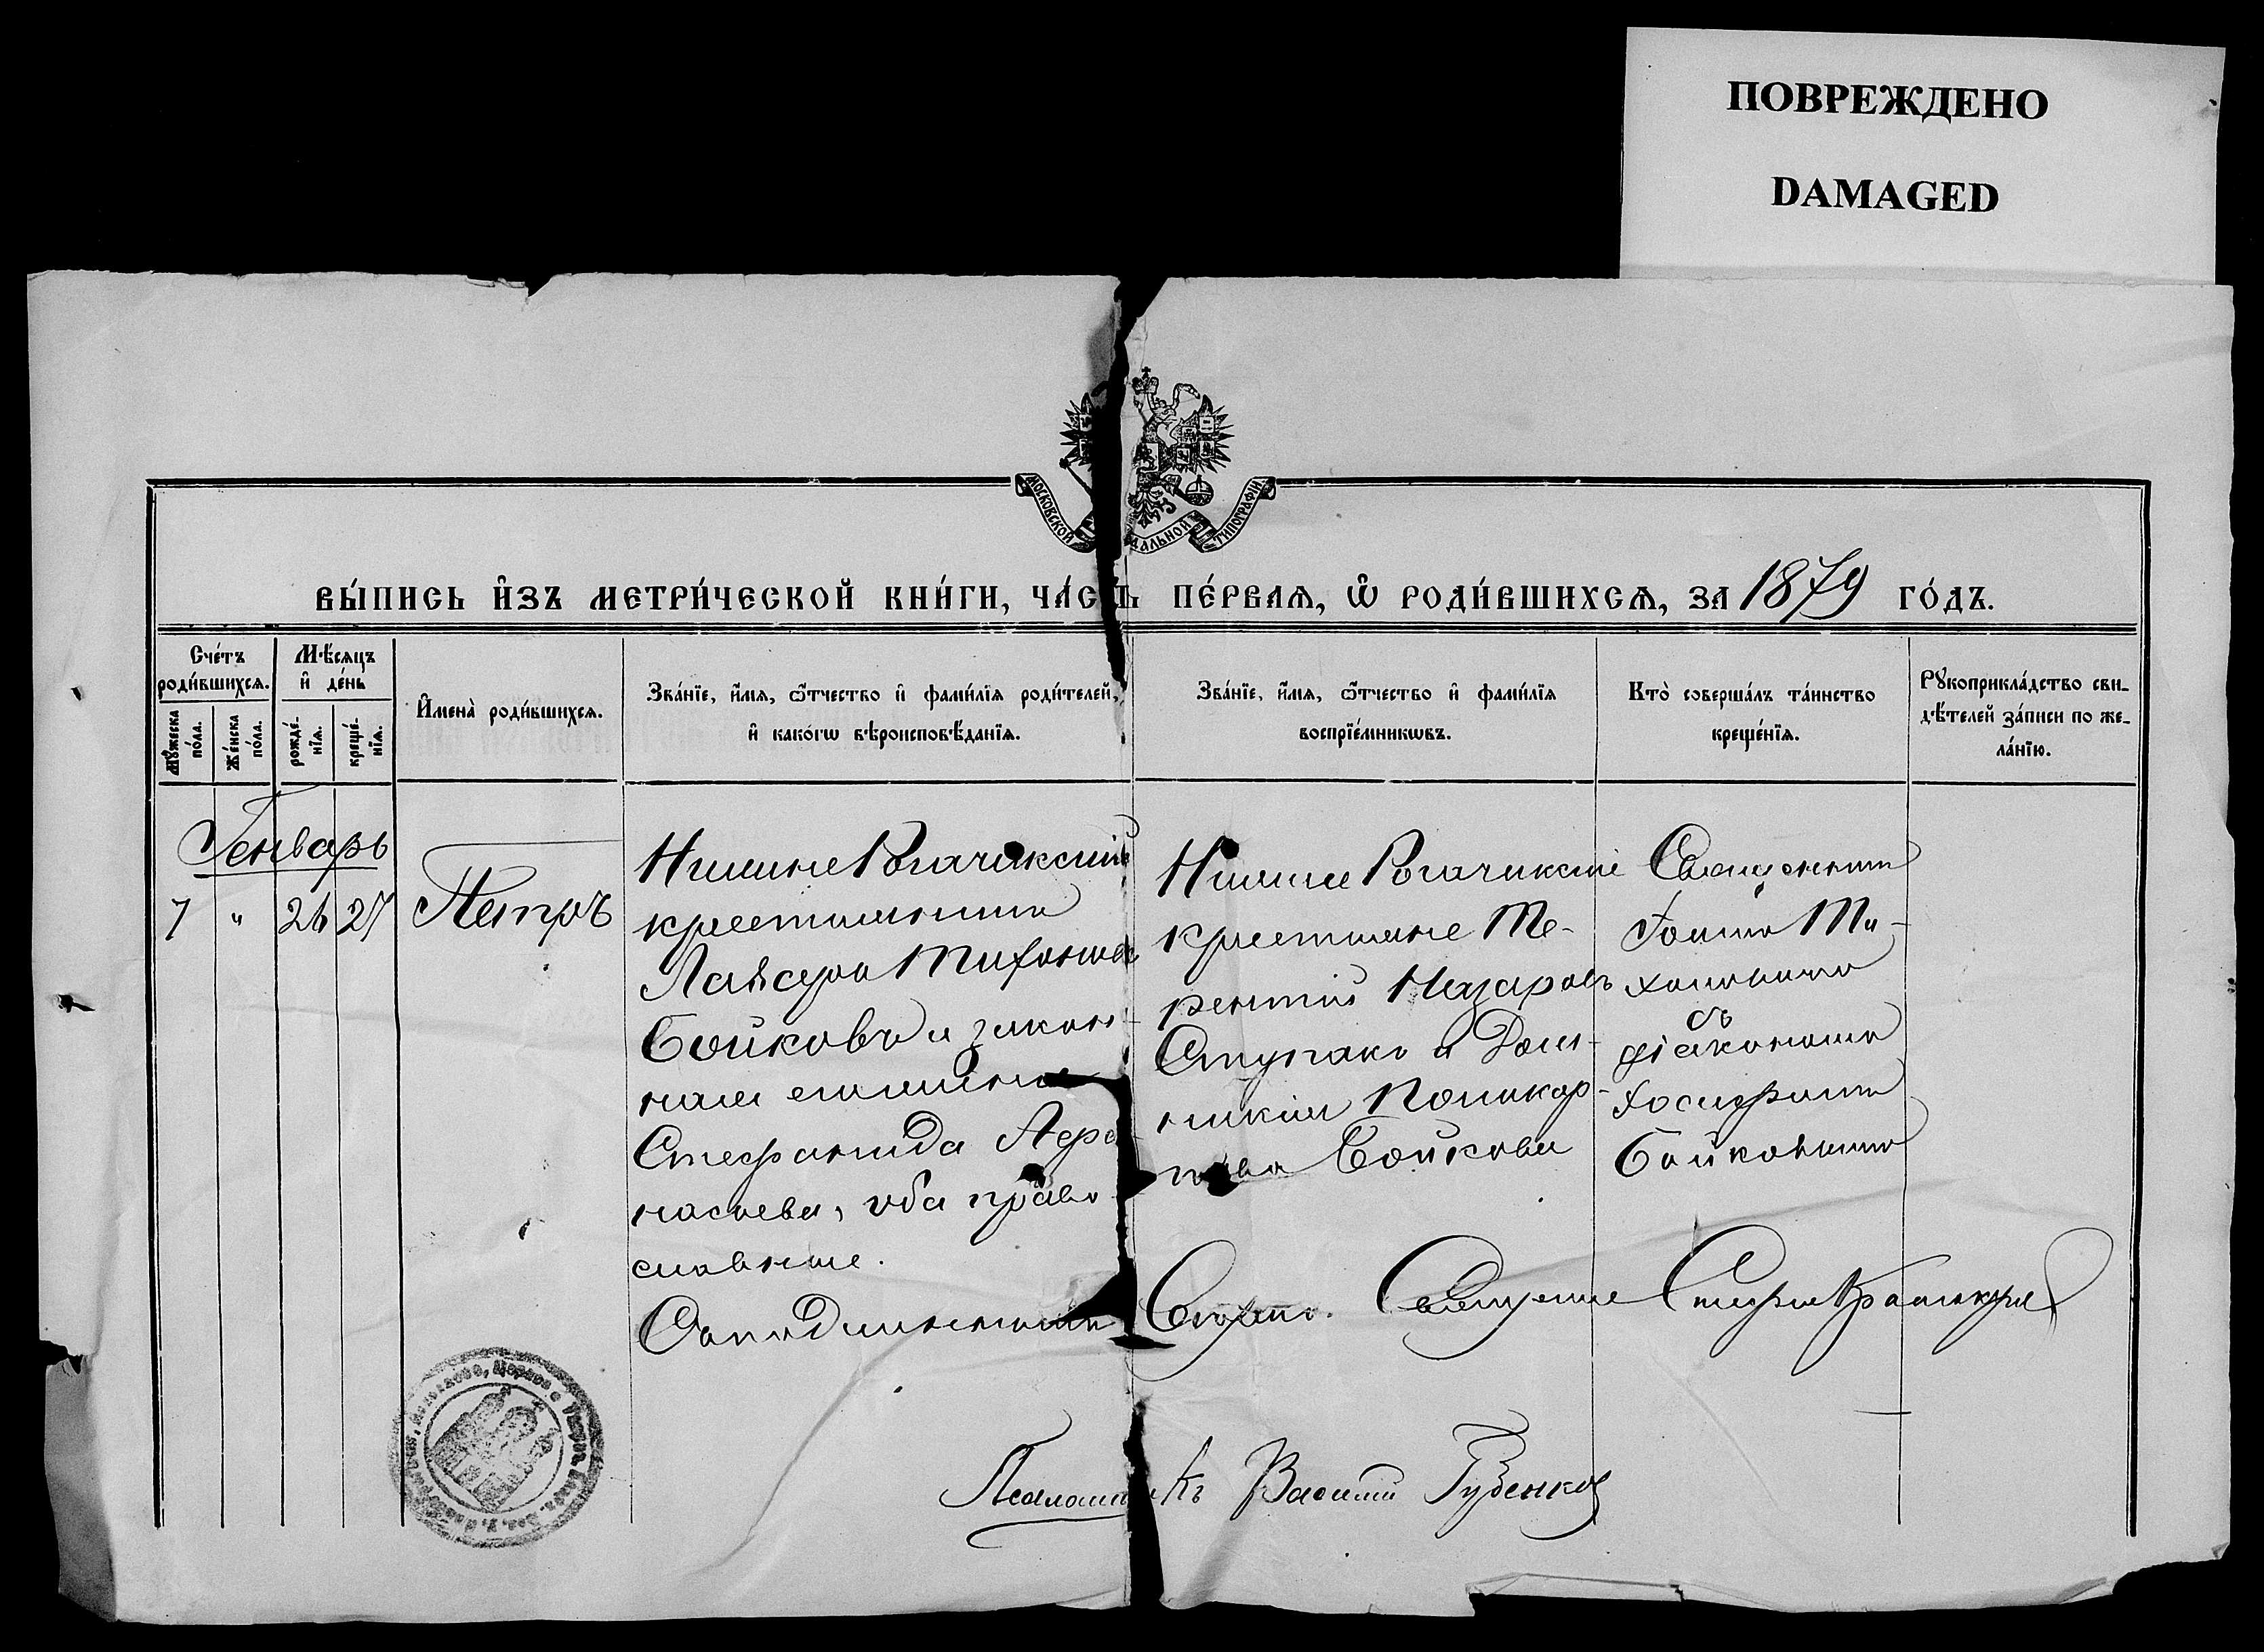 ПОВРЕЖДЕНО
DAMAGED
МОСКОВСКОЙ
ДАЛЬНОЙ
ТИПОГРАФІИ
ВЫ́ПИСЬ И҆́ЗЪ МЕТРИ́ЧЕСКОЙ КНИ́ГИ, ЧА́СТЬ ПЕ́РВАЯ, Ѡ҆ РОДИ́ВШИХСЯ, ЗА 1879 ГО́ДЪ.
Сче́тъ роди́вшихся.
Мꙋ́жеска по́ла.
Же́нска по́ла.
Мѣ́сяцъ и҆ де́нь
рожде́нїя.
креще́нїя.
И҆мена̀ роди́вшихся.
Зва́нїе, и҆́мя, ѻ҆́тчество и҆ фами́лїя роди́телей,
и҆ како́гѡ вѣроисповѣ́данїя.
Зва́нїе, и҆́мя, ѻ҆́тчество и҆ фами́лїя
воспрїе́мникѡвъ.
Кто̀ соверша́лъ та́инство
креще́нїя.
Рꙋкоприкла́дство сви-
дѣ́телей за́писи по же-
ла́нїю.
Генварь
7 " 26 27
Петръ
Нижне Рогачикскій
крестьянинъ
Лавер Тихоновъ
Бойковъ и закон-
ная его жена
Стефанида Афа-
насьева, оба право
славные.
Нижне Рогачикскіе
крестьяне Те-
рентій Назаровъ
Ступакъ и Дом-
никія Поликар-
пова Бойкова
Священникъ
Іоаннъ Ти-
хоновичъ
съ
діакономъ
Іосифомъ
Бойковымъ
Священникъ Стефанъ
Псаломщикъ Василій Губенковъ